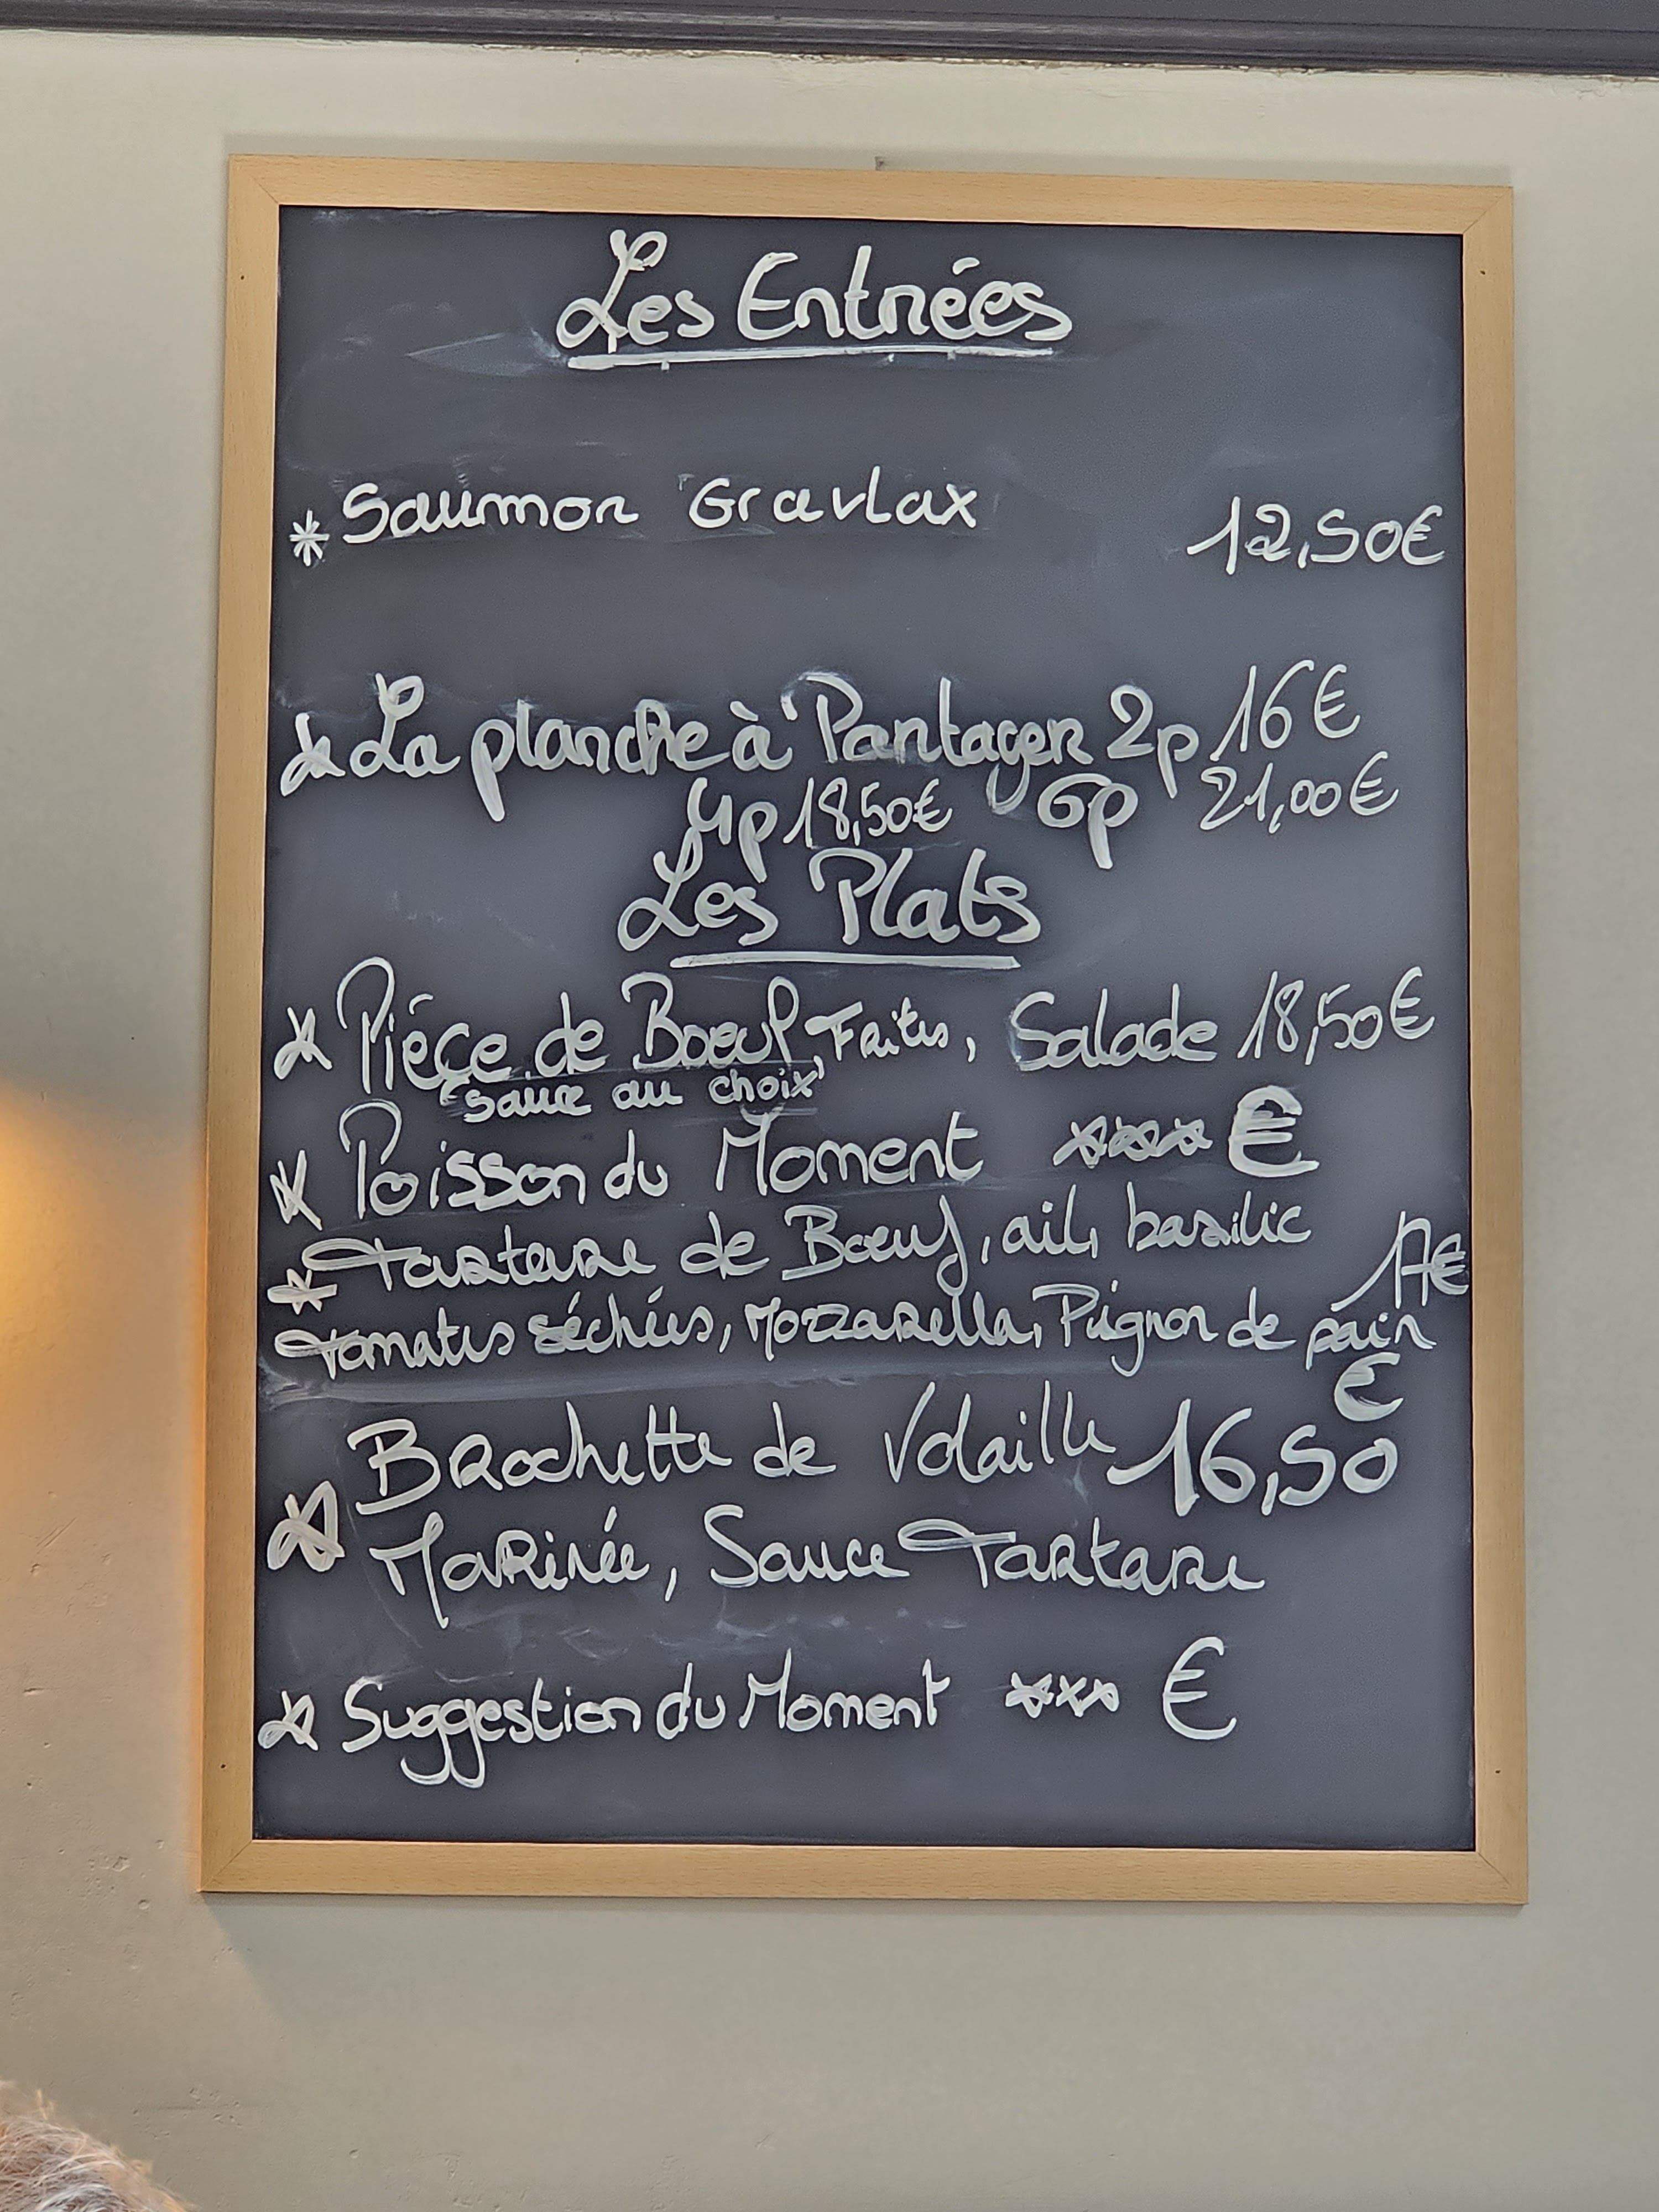 Les Entrées
* Saumon Gravlax 12,50€
* La planche à Partager 2p 16€
4p 18,50€ 6p 21,00€
Les Plats
* Piéce de Boeuf, Frites, Salade 18,50€
"sauce au choix"
* Poisson du Moment **** €
* Tartare de Boeuf, ail, basilic
17€
Tomates séchées, Mozzarella, Pignon de pain
€
* Brochette de Volaille 16,50
Marinée, Sauce Tartare
* Suggestion du Moment *** €